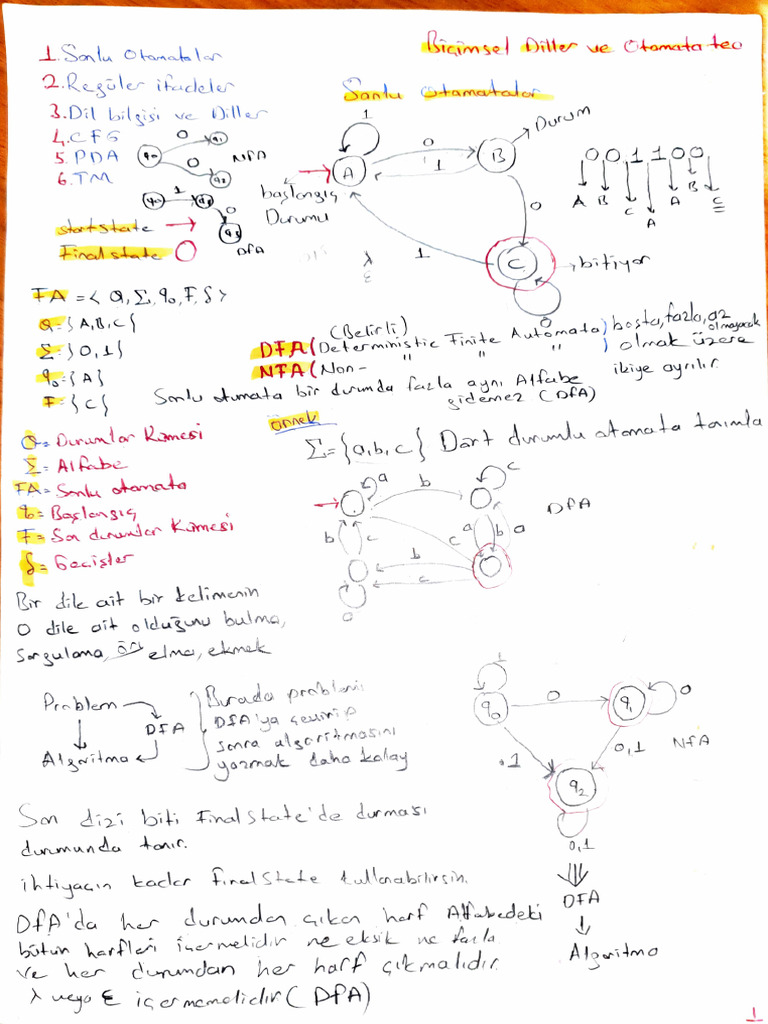 Biçimsel Diller ve Otomata teo
1. Sonlu Otomatalar
2. Regüler ifadeler
3. Dil bilgisi ve Diller
4. CFG
5. PDA
6. TM
q0 0 q1
0 q2
NFA
q0 1 q2
0 q3
DFA
start state →
Final state O
Sonlu otomatalar
1
A 0 B → Durum
1
başlangıç
Durumu
0
1
C → bitiyor
0
λ
ε
0 0 1 1 0 0
A B C A A B C
FA = < Q, Σ, q0, F, δ >
Q = {A, B, C}
Σ = {0, 1}
q0 = {A}
F = {C}
(Belirli)
DFA (Deterministic Finite Automata) boşta, fazla, az
olmayacak
NFA (Non- " " " ) olmak üzere
ikiye ayrılır.
Sonlu otomata bir durumda fazla aynı Alfabe
gidemez (DFA)
Q = Durumlar Kümesi
Σ = Alfabe
FA = Sonlu otomata
q0 = Başlangıç
F = Son durumlar Kümesi
δ = Geçişler
örnek
Σ = {a, b, c} Dört durumlu otomata tanımla
a b c
DFA
b c c a b a
b
c
Bir dile ait bir kelimenin
O dile ait olduğunu bulma,
Sorgulama, ör: elma, ekmek
Problem
DFA
Algoritma
Burada problemi
DFA'ya çevirip
sonra algoritmasını
yazmak daha kolay
1
q0 0 q1 0
0,1 NFA
,1
q2
0,1
DFA
↓
Algoritma
Son dizi biti Final State'de durması
durumunda tanır.
ihtiyacın kadar Final State kullanabilirsin.
DFA'da her durumdan çıkan harf Alfabedeki
bütün harfleri içermelidir ne eksik ne fazla
ve her durumdan her harf çıkmalıdır.
λ veya ε içermemelidir (DFA)
1